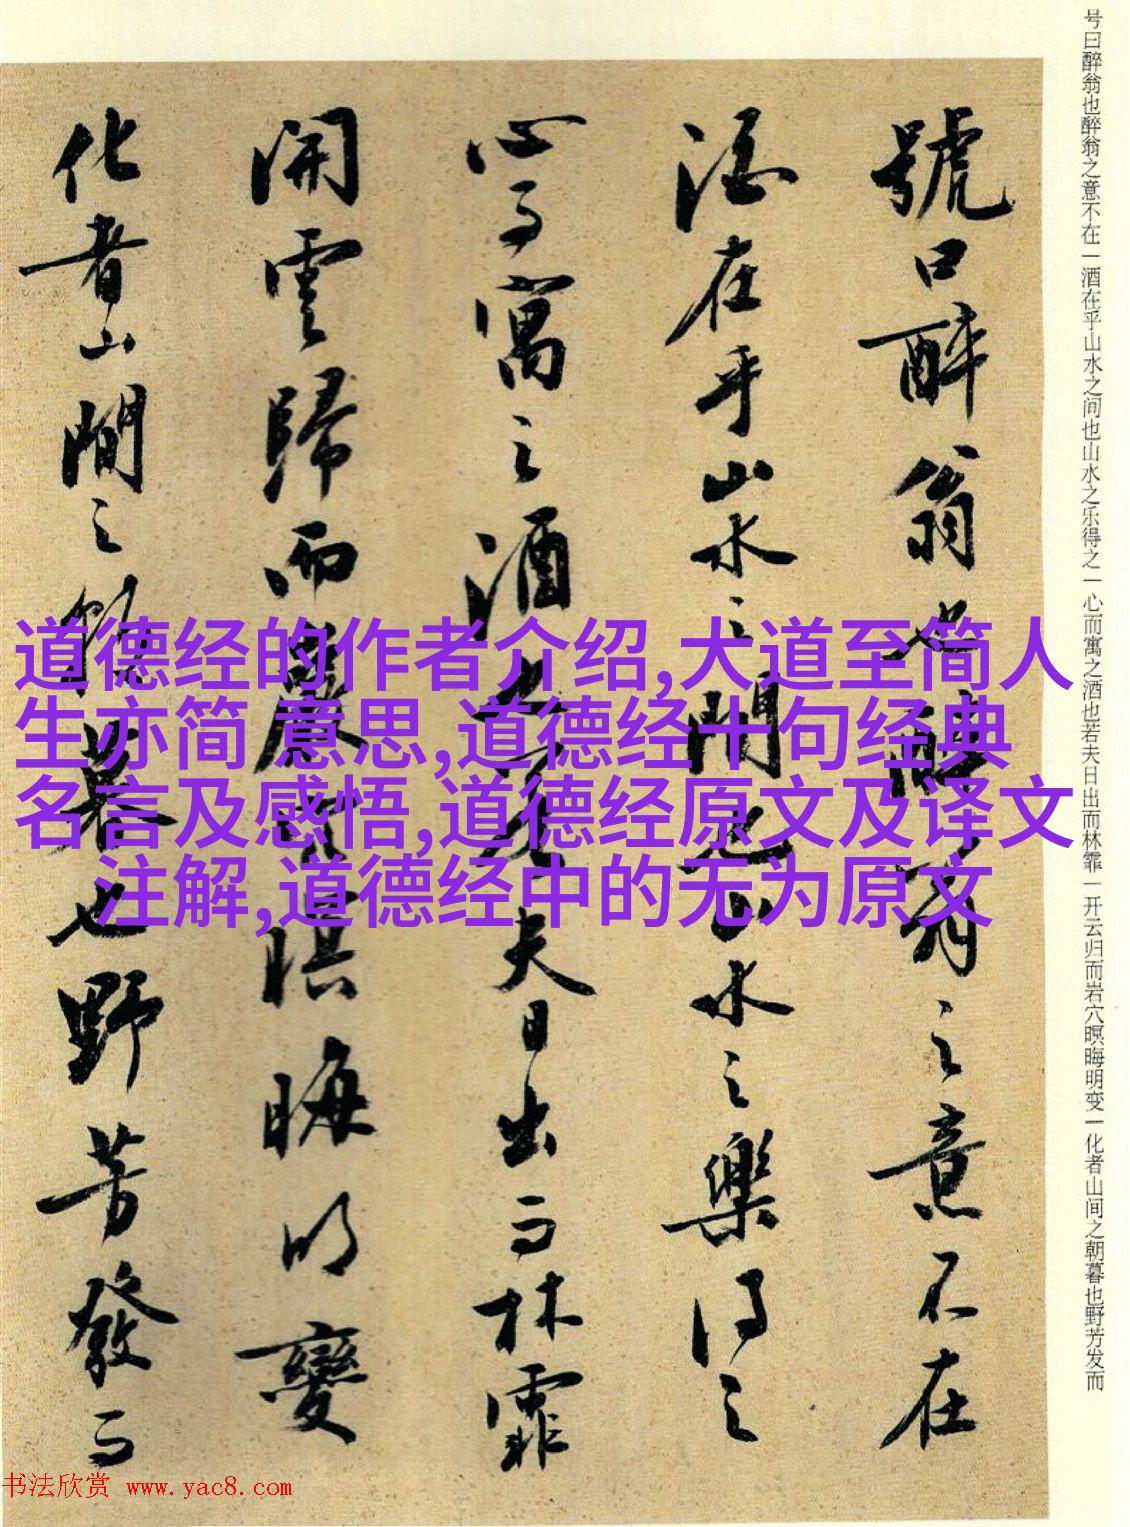 号曰醉翁也醉翁之意不在一酒在乎山水之间也山水之乐得之一心而寓之酒也若夫日出而林霏一开云归而岩穴暝晦明变一化者山间之朝暮也野芳发而
號曰醉翁也醉翁之意不在
酒在乎山水之間也山水之樂得之
心而寓之酒也若夫日出而林霏
開雲歸而巖穴暝晦明變
化者山間之朝暮也野芳發而
道德经的作者介绍,大道至简人
生亦简 意思,道德经十句经典
名言及感悟,道德经原文及译文
注解,道德经中的无为原文
书法欣赏 www.yac8.com